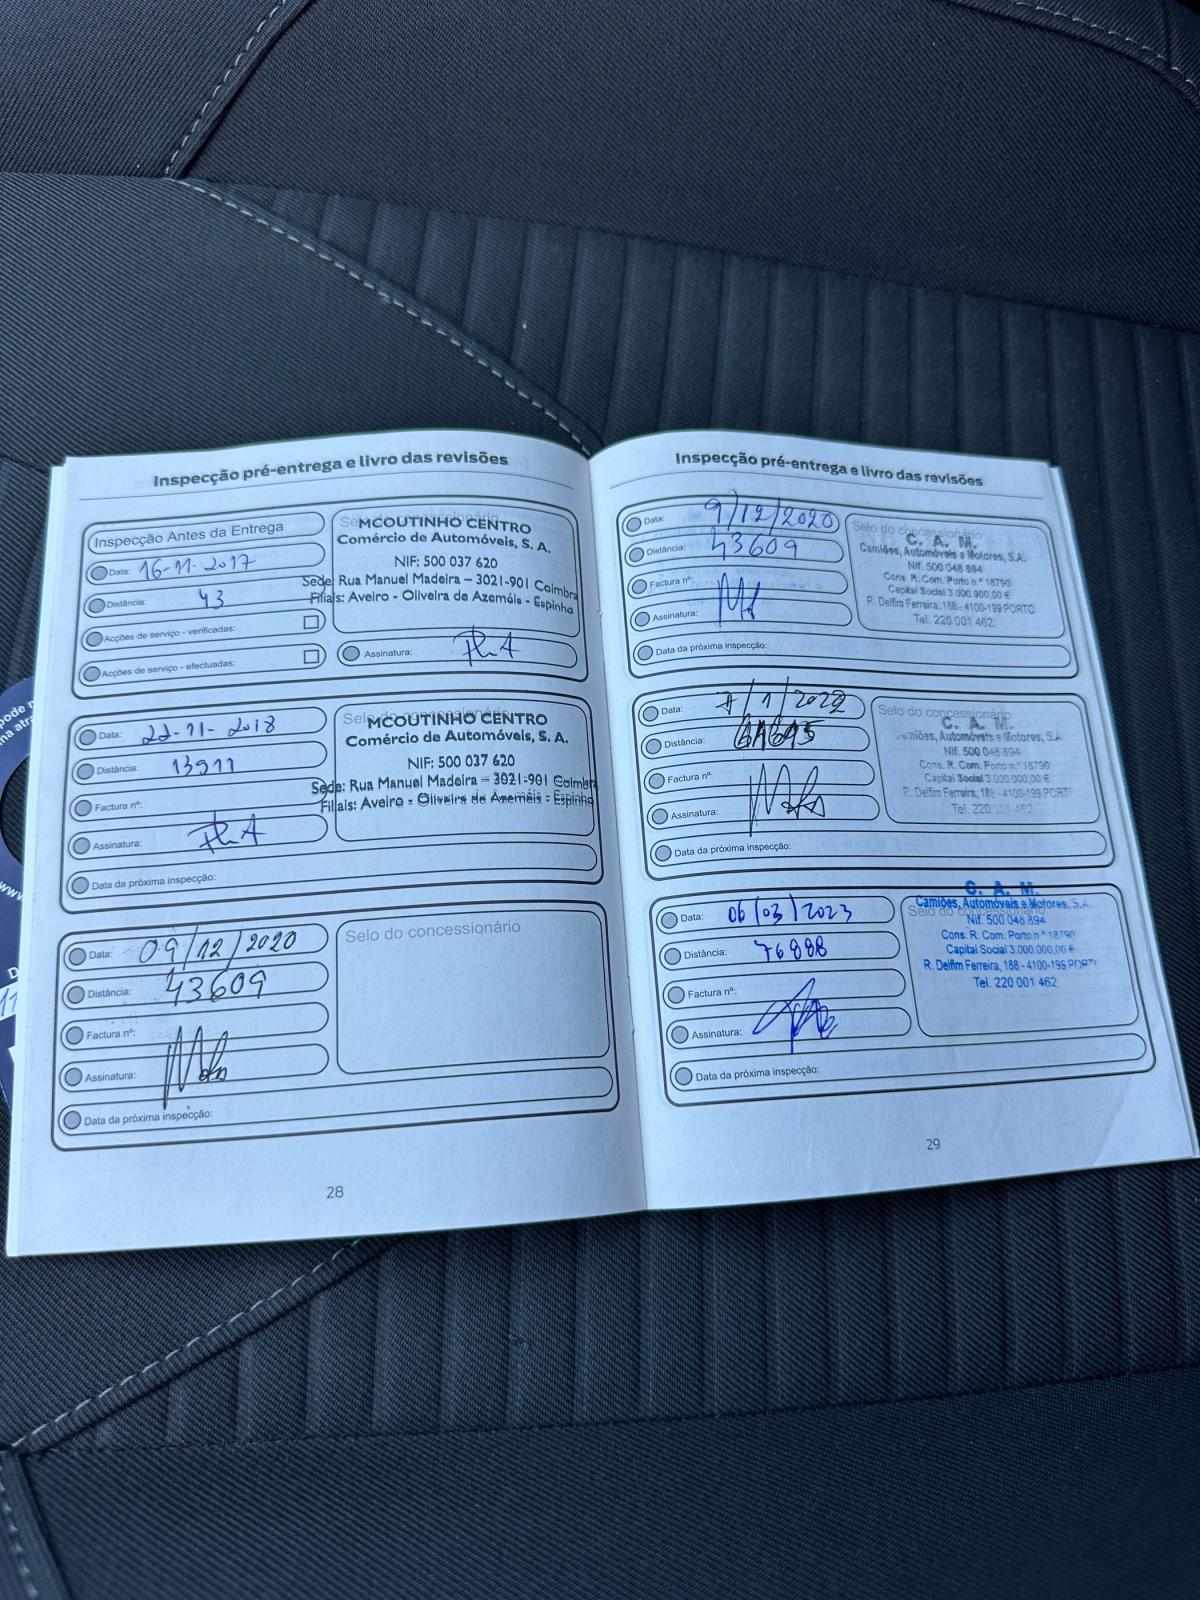 Inspecção pré-entrega e livro das revisões
Inspecção Antes da Entrega
Data: 16-11-2017
Distância: 43
Acções de serviço - verificadas:
Acções de serviço - efectuadas:
Selo do concessionário
MCOUTINHO CENTRO
Comércio de Automóveis, S. A.
NIF: 500 037 620
Sede: Rua Manuel Madeira – 3021-901 Coimbra
Filiais: Aveiro - Oliveira de Azeméis - Espinho
Assinatura:
Data: 22-11-2018
Distância: 13911
Factura nº:
Assinatura:
Data da próxima inspecção:
Selo do concessionário
MCOUTINHO CENTRO
Comércio de Automóveis, S. A.
NIF: 500 037 620
Sede: Rua Manuel Madeira – 3021-901 Coimbra
Filiais: Aveiro - Oliveira de Azeméis - Espinho
Data: 09/12/2020
Distância: 43609
Factura nº:
Assinatura:
Data da próxima inspecção:
Selo do concessionário
28
Inspecção pré-entrega e livro das revisões
Data: 9/12/2020
Distância: 43609
Factura nº:
Assinatura:
Data da próxima inspecção:
Selo do concessionário
C. A. M.
Camiões, Automóveis e Motores, S.A.
Nif. 500 048 894
Cons. R. Com. Porto n.º 18790
Capital Social 3.000.000,00 €
R. Delfim Ferreira, 188 - 4100-199 PORTO
Tel. 220 001 462
Data: 7/1/2022
Distância:
Factura nº:
Assinatura:
Data da próxima inspecção:
Selo do concessionário
C. A. M.
Camiões, Automóveis e Motores, S.A.
Nif. 500 048 894
Cons. R. Com. Porto n.º 18790
Capital Social 3.000.000,00 €
R. Delfim Ferreira, 188 - 4100-199 PORTO
Tel. 220 001 462
Data: 06/03/2023
Distância: 76888
Factura nº:
Assinatura:
Data da próxima inspecção:
Selo do concessionário
C. A. M.
Camiões, Automóveis e Motores, S.A.
Nif. 500 048 894
Cons. R. Com. Porto n.º 18790
Capital Social 3.000.000,00 €
R. Delfim Ferreira, 188 - 4100-199 PORTO
Tel. 220 001 462
29